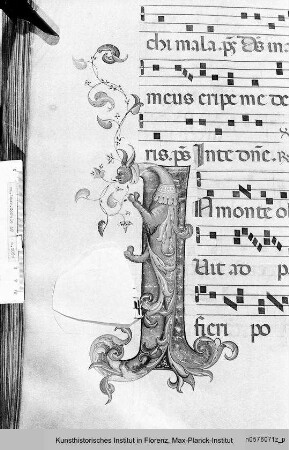 chi mala. ps Ds in a
meus eripe me de
ris. ps In te dne. R
In monte ol
uit ad p
fieri po
Kunsthistorisches Institut in Florenz, Max-Planck-Institut